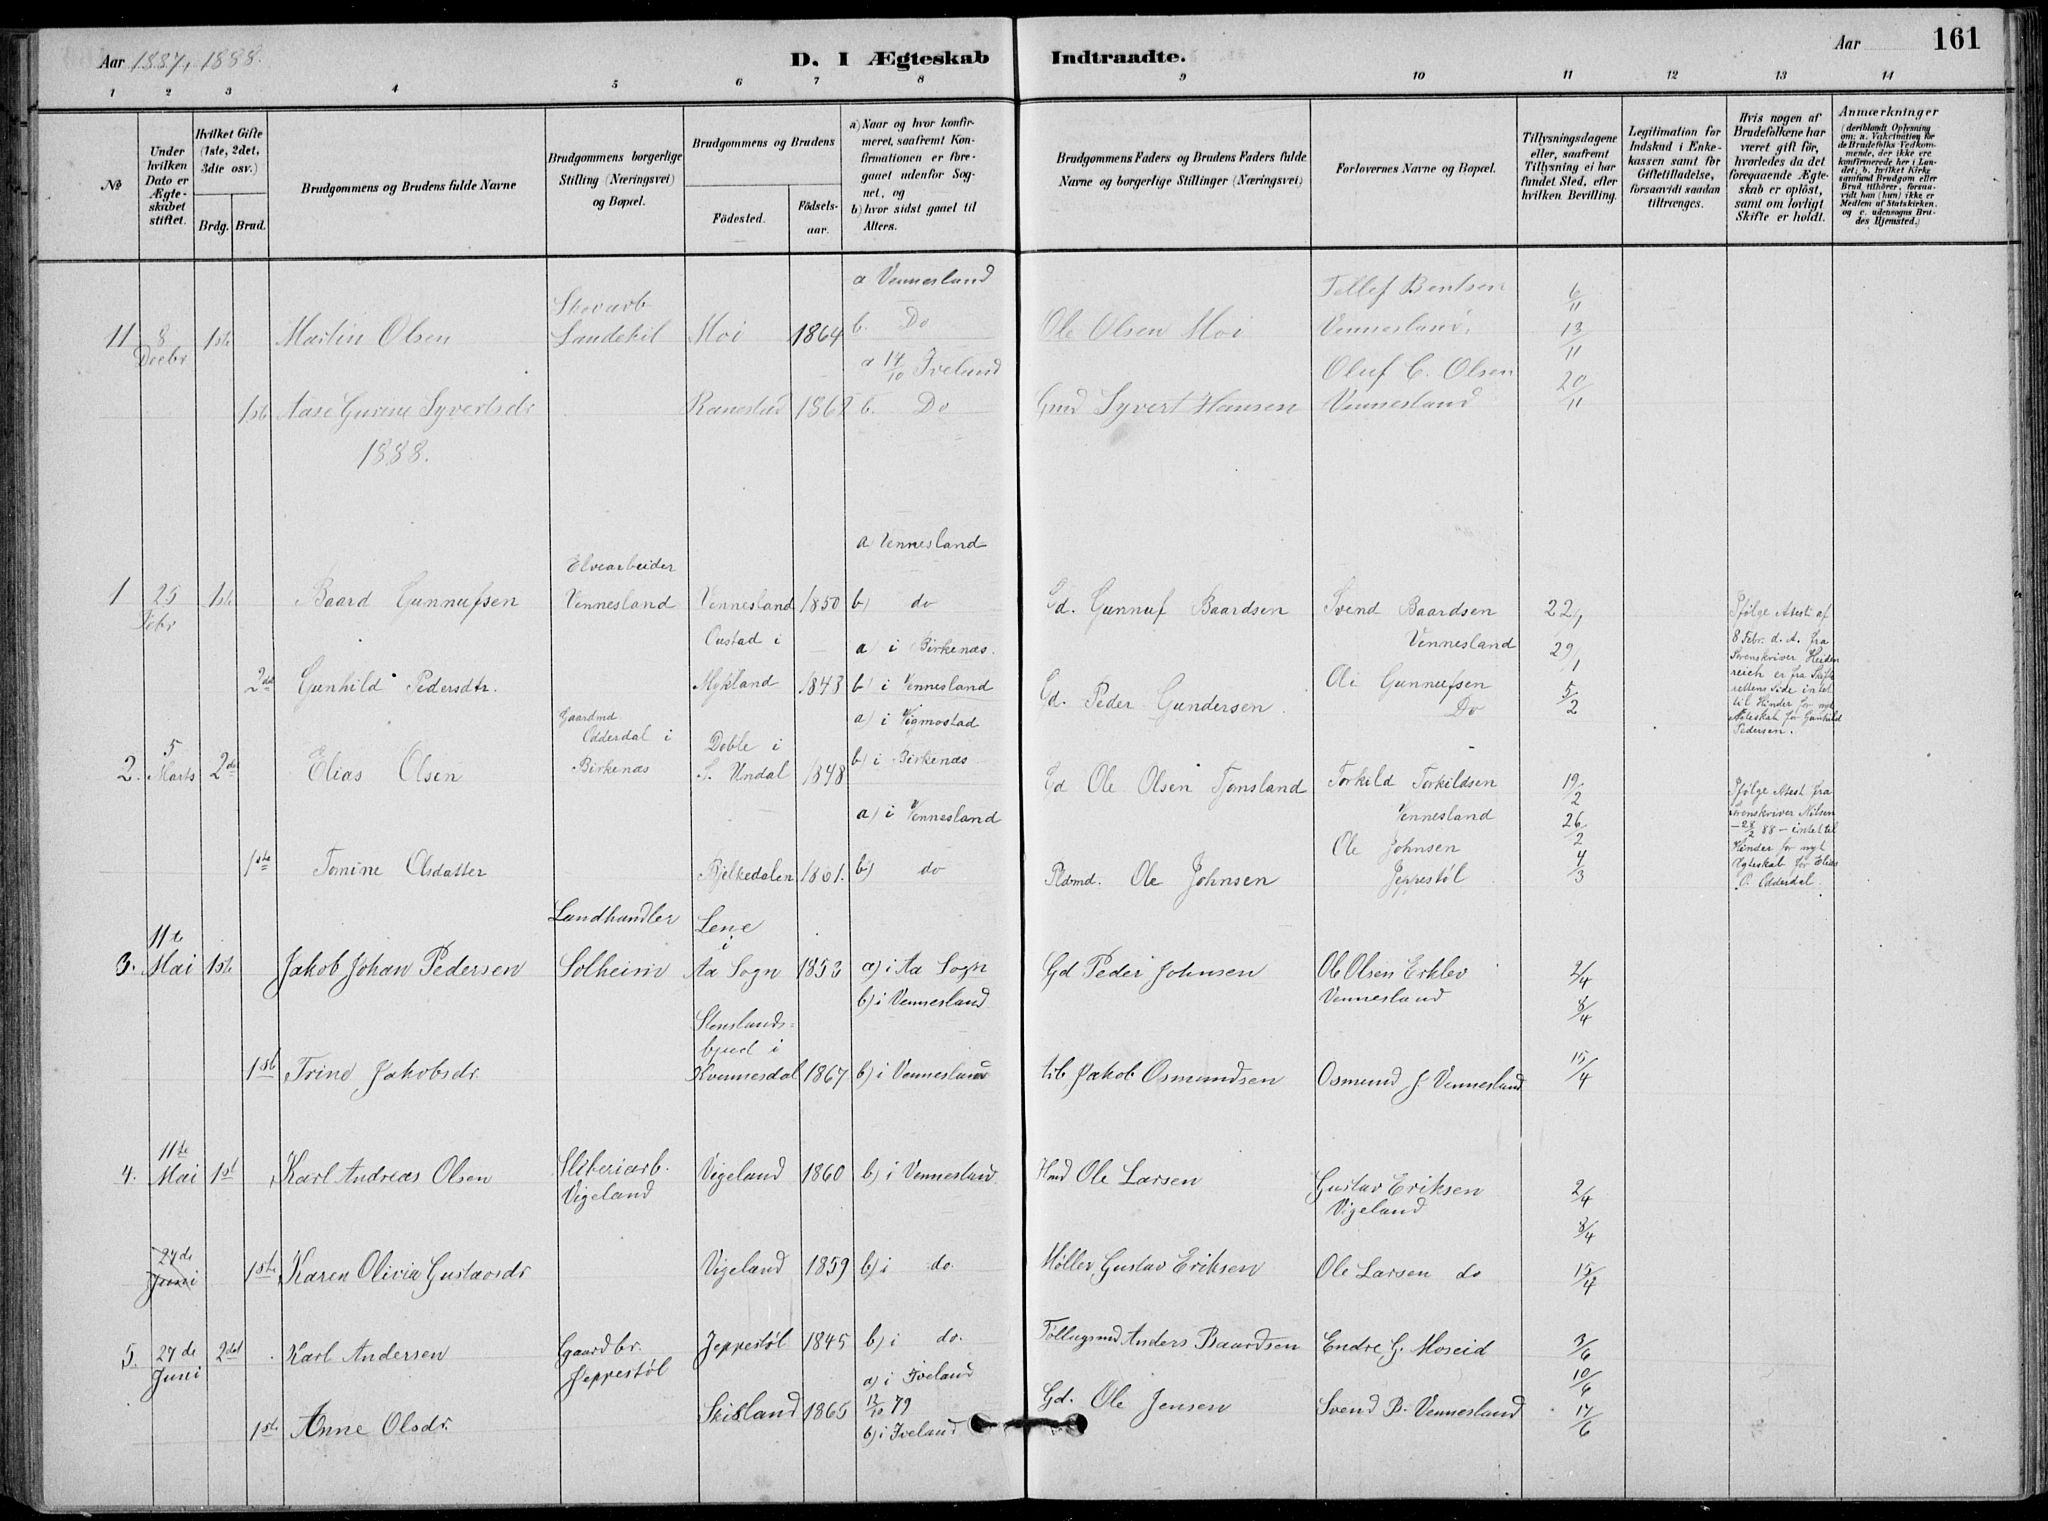 Aar 1887, 1888.
D. I Ægteskab Indtraadte.
Aar
161
1 2 3 4 5 6 7 8 9 10 11 12 13 14
№
Under hvilken Dato er Ægteskabet stiftet.
Hvilket Gifte (1ste, 2det, 3dte osv.)
Brdg. Brud.
Brudgommens og Brudens fulde Navne
Brudgommens borgerlige Stilling (Næringsvei) og Bopæl.
Brudgommens og Brudens
Fødested.
Fødselsaar.
a) Naar og hvor konfirmeret, saafremt Konfirmationen er foregaaet udenfor Sognet, og
b) hvor sidst gaaet til Alters.
Brudgommens Faders og Brudens Faders fulde Navne og borgerlige Stillinger (Næringsvei)
Forlovernes Navne og Bopæl.
Tillysningsdagene eller, saafremt Tillysning ei har fundet Sted, efter hvilken Bevilling.
Legitimation for Indskud i Enkekassen samt for Giftetilladelse, forsaavidt saadan tiltrænges.
Hvis nogen af Brudefolkene har været gift før, hvorledes da det foregaaende Ægteskab er opløst, samt om lovligt Skifte er holdt.
Anmærkninger (deriblandt Oplysning om: a. Vakcination for de Brudefolks Vedkommende, der ikke ere konfirmerede her i Landet; b. hvilket Kirkesamfund Brudgom eller Brud tilhører, forsaavidt han (hun) ikke er Medlem af Statskirken. og c. udensogns Brudes Hjemsted.)
11 8 Decbr 1ste Martin Olsen Landekil Moi 1864 a Vennesland b. Do Ole Olsen Moi Tellef Bentsen Vennesland. 6/11 13/11
1ste Aase Gurine Syvertsdr 1862 a 14/10 Iveland b. Do Gmd Syvert Hansen Oluf C. Olsen Vennesland 20/11
1888.
1 25 Febr 1ste Baard Gunnufsen Elvearbeider Vennesland Vennesland 1850 a Vennesland b) do Gd. Gunnuf Baardsen Svend Baardsen Vennesland 22, 29/1
2det Gunhild Pedersdtr. Custad i Mykland 1843 a) i Birkenæs. b) i Vennesland Gd. Peder Gundersen Ole Gunnufsen Do 5/2
Ifølge Attest af 8 Febr. d. A. fra Sorenskriver Heidenreich er fra Skifterettens Side intet til Hinder for nyt Ægteskab for Gunhild Pedersen.
2. 5 Marts 2det Elias Olsen Gaardmd Odderdal i Birkenæs Doble i S. Undal 1848 a) i Vigmostad b) i Birkenæs Gd Ole Olsen Tjomsland Torkild Torkildsen Vennesland 19/2 26/2
1ste Tomine Olsdatter Bjelkedalen 1861. a) i Vennesland b) do Pldmd. Ole Johnsen Ole Johnsen Jeppestøl 4/3
Ifølge Attest fra Sorenskriver Nilsen - 28/2 88 - intet til Hinder for nyt Ægteskab for Elias O. Odderdal.
3. 11te Mai 1ste Jakob Johan Pedersen Landhandler Solheim Lene i Aa Sogn 1853 a) i Aa Sogn b) i Vennesland Gd Peder Johnsen Ole Olsen Erklev Vennesland 2/4 8/4
1ste Trine Jakobsdr. Kvinnesdal 1867 b) i Vennesland Jakob Osmundsen Osmund J Vennesland 15/4
4. 11te Mai 1st Karl Andreas Olsen Sliberiarb. Vigeland Vigeland 1860 b) i Vennesland Hmd Ole Larsen Gustav Eriksen Vigeland 2/4 8/4
27de Juni 1ste Karen Olivia Gustavsdr Vigeland 1859 b) i do. Møller Gustav Eriksen Ole Larsen do 15/4
5. 27de Juni 2det Karl Andersen Gaardbr. Jeppestøl Jeppestøl 1845 b) i do. Anders Baardsen Endre G. Moseid 3/6 10/6
1ste Anne Olsdr. Skisland 1865 a) i Iveland 12/10 79 b) i Iveland Gd. Ole Jensen Svend B. Vennesland 17/6